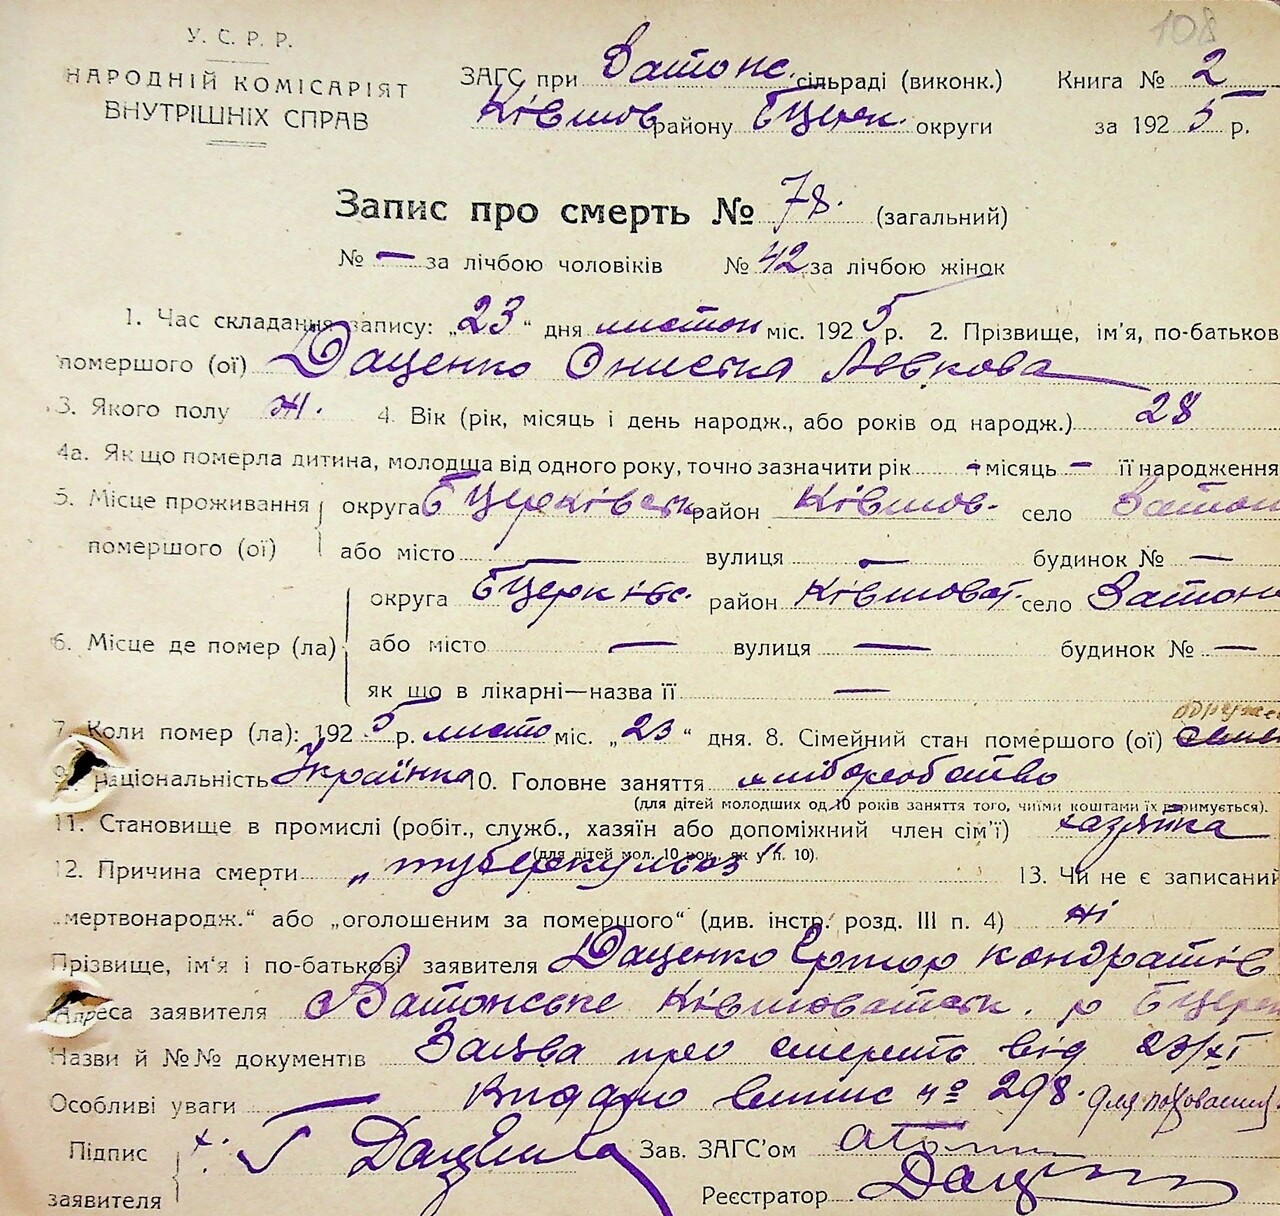 108
У. С. Р. Р.
НАРОДНІЙ КОМІСАРІЯТ
ВНУТРІШНІХ СПРАВ
ЗАГС при Ватонс. сільраді (виконк.)
Ківшов району Бцерк. округи
Книга № 2
за 1925 р.
Запис про смерть № 78. (загальний)
№ — за лічбою чоловіків № 42 за лічбою жінок
1. Час складання запису: „23“ дня листоп міс. 1925 р. 2. Прізвище, ім'я, по-батьков
помершого (ої) Даценко Онистка Левкова
3. Якого полу ж. 4. Вік (рік, місяць і день народж., або років од народж.) 28
4а. Як що померла дитина, молодща від одного року, точно зазначити рік — місяць — її народження
5. Місце проживання помершого (ої) округа Бцерківськ район Ківшов. село Ватон
або місто — вулиця — будинок № —
6. Місце де помер (ла) округа Бцерківс. район Ківшоват. село Ватон
або місто — вулиця — будинок № —
як що в лікарні—назва її —
7. Коли помер (ла): 1925 р. листо міс. „23“ дня. 8. Сімейний стан помершого (ої)
9. Національність Українка 10. Головне заняття хліборобство
(для дітей молодших од 10 років заняття того, чиїми коштами їх втримується).
11. Становище в промислі (робіт., служб., хазяїн або допоміжний член сім'ї) хазяйка
(для дітей мол. 10 рок. як у п. 10).
12. Причина смерти „туберкульоз“ 13. Чи не є записаний
„мертвонародж.“ або „оголошеним за помершого“ (див. інстр. розд. III п. 4) ні
Прізвище, ім'я і по-батькові заявителя Даценко Кондратів
Адреса заявителя Ватонське Ківшоватськ. р Бцерк
Назви й №№ документів Заява про смерть від 23/XI
Особливі уваги — Видано випис № 298. для поховання
Підпис заявителя Г Даценко Зав. ЗАГС'ом
Реєстратор Дац